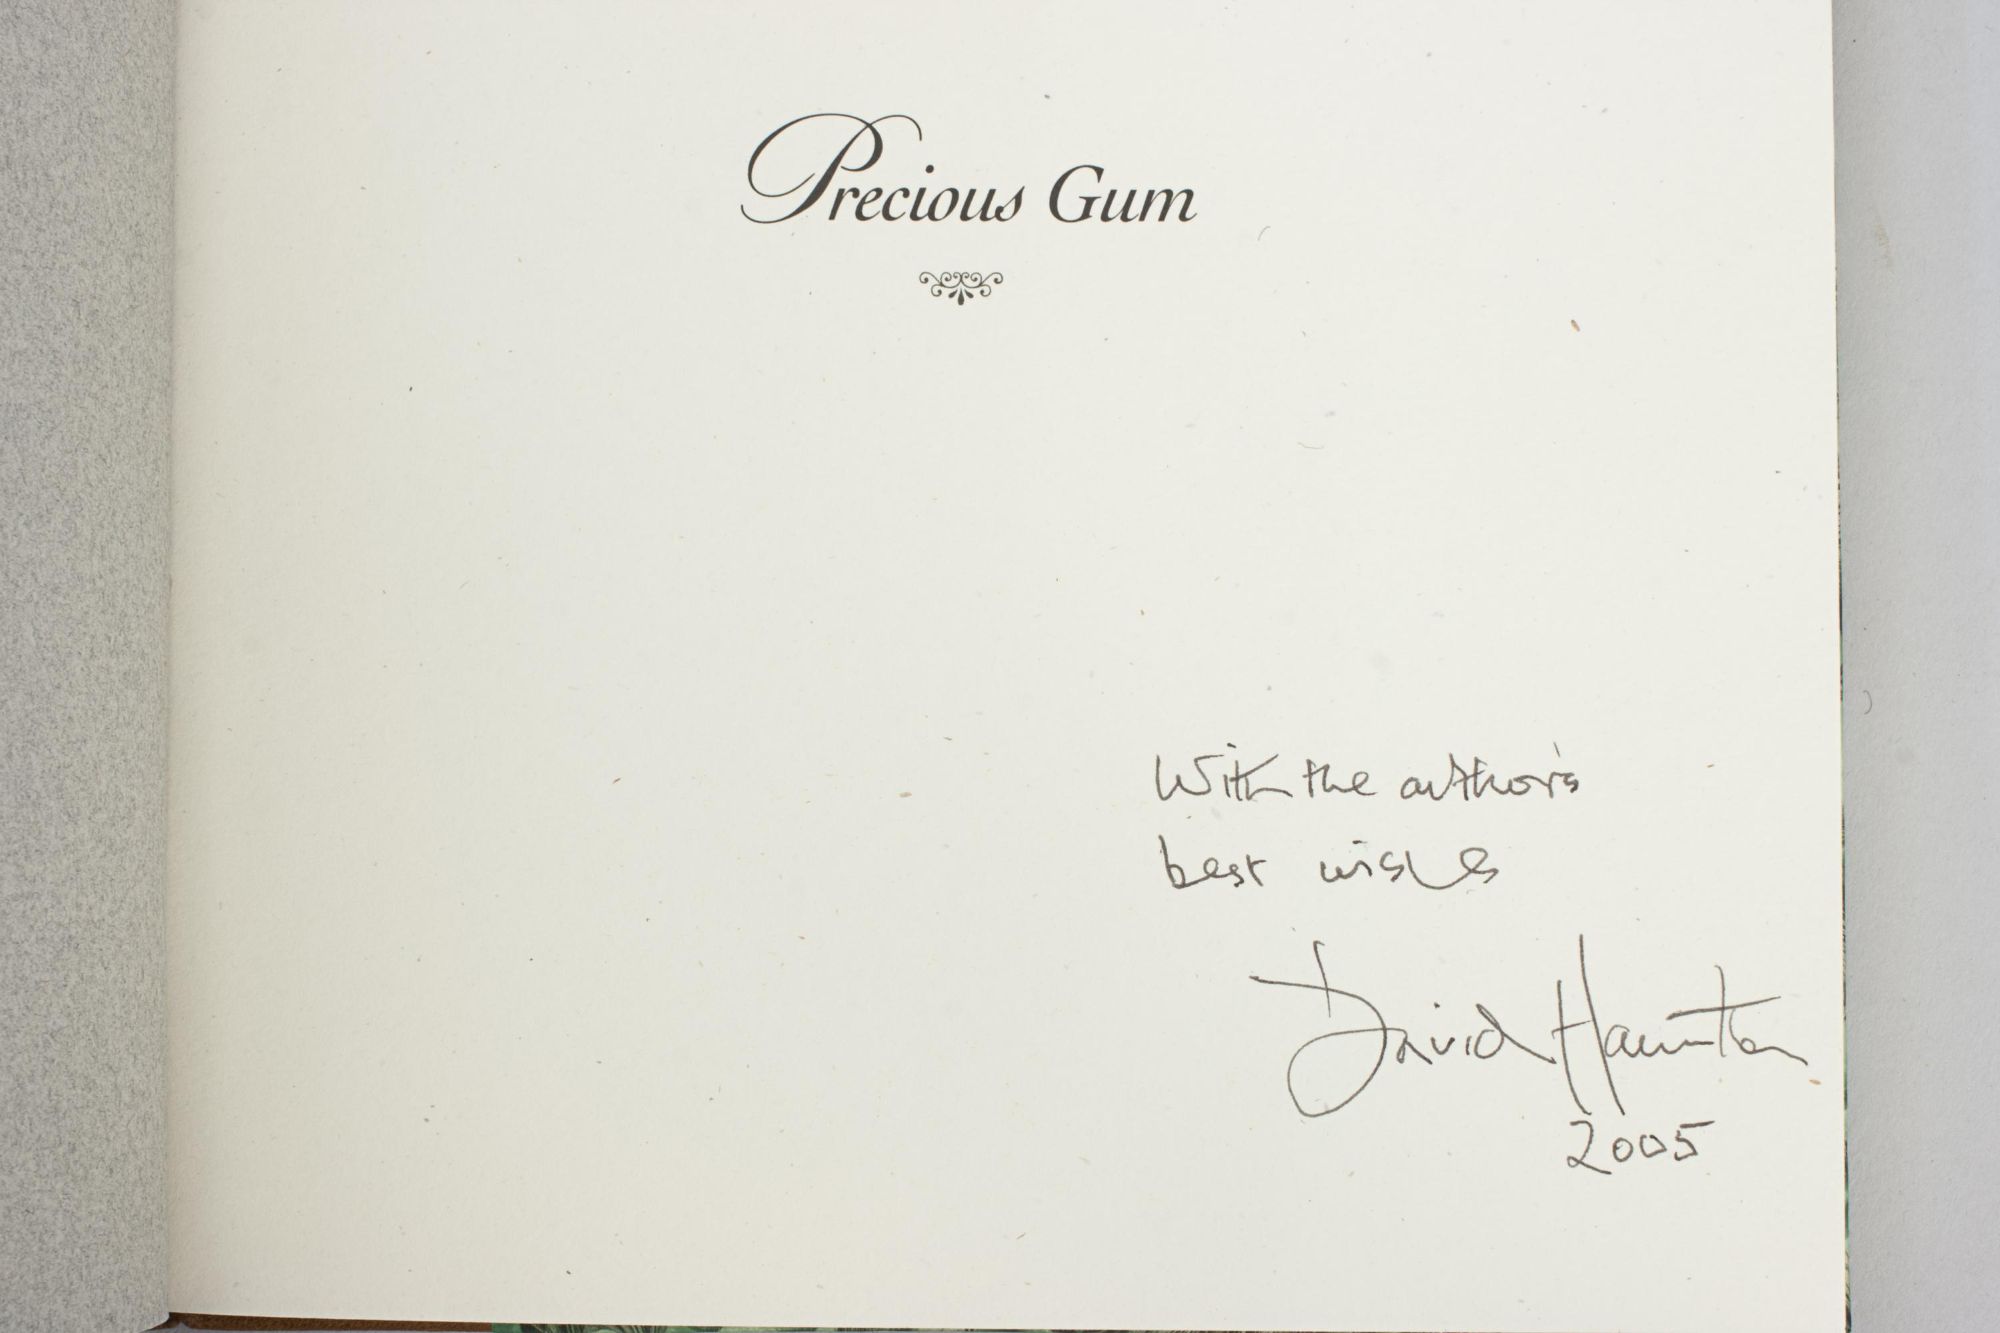 Precious Gum
With the author's
best wishes
David Hamilton
2005